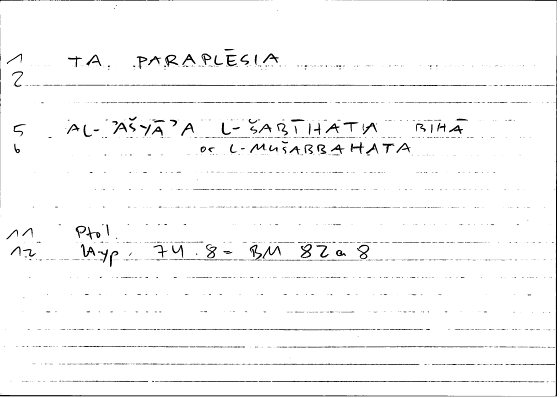 1 TA PARAPLĒSIA
2
5 AL-ʾAŠYĀʾA L-ŠABĪHATA BIHĀ
6 or L-MUŠABBAHATA
11 Ptol.
12 Hyp. 74.8 = BM 82a8